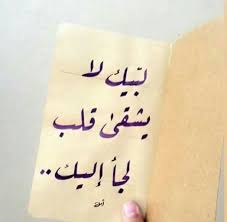 لبّيك لا
يشقىٰ قلب
لجأ إليك..